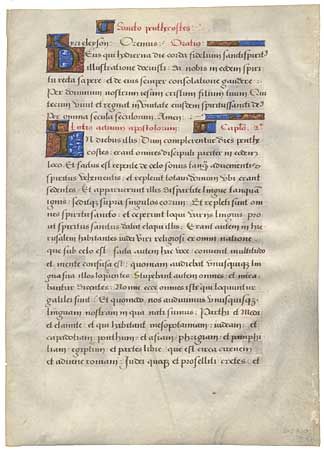 Sancto penthecostes
kyrieleyson: Oremus: Oratio:
Deus qui hodierna die corda fidelium sancti spiritus
illustratione docuisti: da nobis in eodem spiri-
tu recta sapere et de eius semper consolatione gaudere:
Per dominum nostrum iesum cristum filium tuum Qui
tecum vivit et regnat in unitate eiusdem spiritus sancti de9
Per omnia secula seculorum. Amen:
Lectio actuum apostolorum: Capło. 2º
In diebus illis: Dum complerentur dies penthe
costes: erant omnes discipuli pariter in eodem
loco Et factus est repente de celo sonus tanq̃ advenientis
spiritus vehementis: et replevit totam domum ubi erant
sedentes. Et apparuerunt illis dispartite lingue tanquã
ignis: seditq; supra singulos eorum: Et repleti sunt om
nes spiritu sancto: et ceperunt loqui variis linguis: pro
ut spiritus sanctus dabat eloqui illis: Erant autem in hie
rusalem habitantes iudei viri religiosi: ex omni natione:
que sub celo est: facta autem hac voce: convenit multitudo
et mente confusa est: quoniam audiebat unusquisque lin
gua sua illos loquentes: Stupebant autem omnes: et mira
bantur dicentes: Nonne ecce omnes isti qui loquuntur
galilei sunt: Et quomodo nos audivimus unusquisq;
linguam nostram in qua nati sumus: Parthi et Medi
et elamite: et qui habitant mesopotamiam: iudeam: et
capadociam: ponthum: et asiam: phrigiam: et pamphi
liam: egiptum: et partes libie: que est circa cirenem:
et advene romani: Iudei quoq; et proselliti: cretes: et